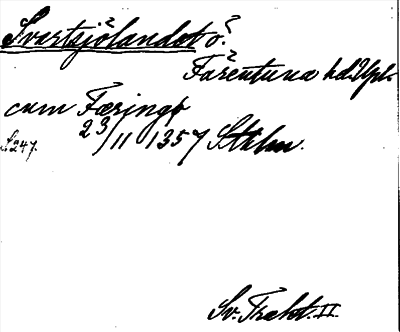 Svartsjölandet ö.
Färentuna hd. Upl.
cum Færingø
23/11 1357 Sthlm.
S. 247.
Sv. Trakt. II.